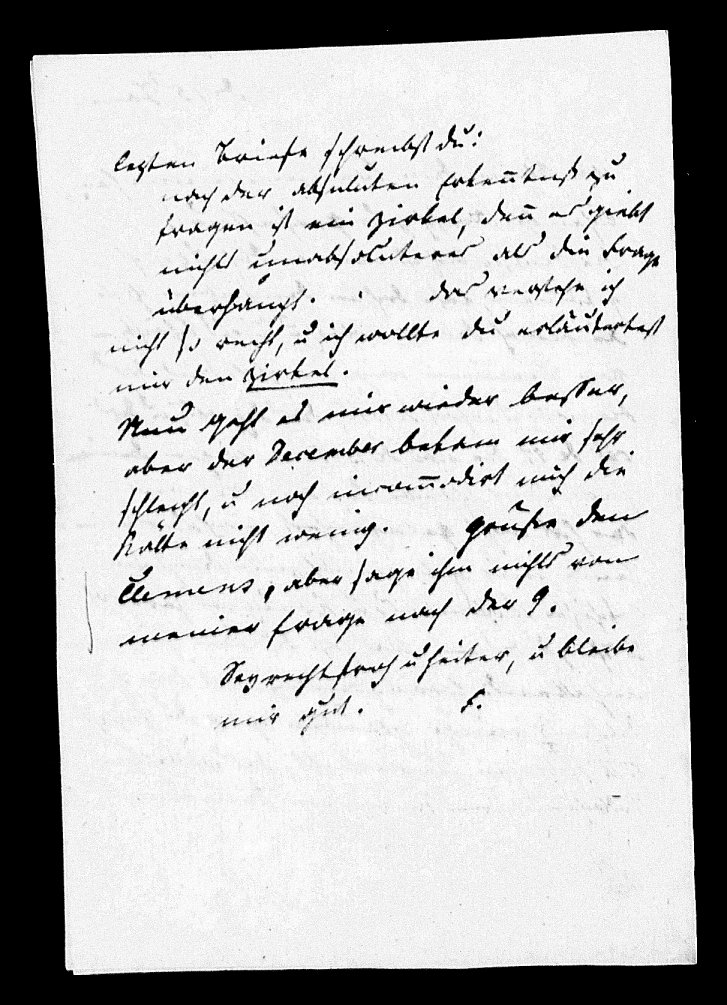 lezten Briefe schreibst du:
nach der absoluten Erkenntniß zu
fragen ist ein Zirkel, deñ es giebt
nichts unabsoluteres als die Frage
überhaupt. das verstehe ich
nicht so recht, u ich wollte du erläutertest
mir den Zirkel.
Nun geht es mir wieder besser,
aber der December bekam mir sehr
schlecht, u noch incom̄odirt mich die
Kälte nicht wenig. Grüße den
Clemens, aber sage ihm nichts von
meiner Frage nach der G.
Sey recht froh u heiter, u bleibe
mir gut. F.